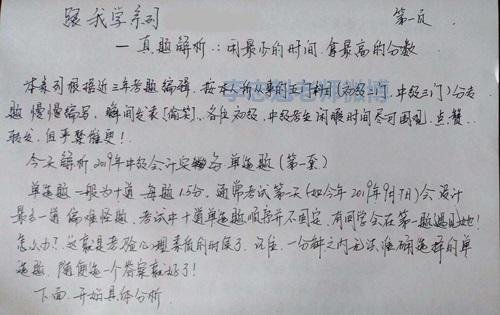 跟我学系列
第一页
一真题解析:用最少的时间 拿最高的分数
本系列根据近三年考题编辑,按本人所从事的五门科目(初级二门、中级三门)分专
题慢慢编写,瞬间发表[偷笑],各位初级、中级考生闲暇时间尽可围观、点赞、
转发,但严禁催更!
今天解析2019年中级会计实务 单选题(第一套)
单选题一般为十道 每题1.5分,通常考试第一天(如今年2019年9月7日)会设计
最多一道偏难怪题,考试中十道单选题顺序并不固定,有同学会在第一题遇见她!
怎么办?这就是考验心理素质的时候了,记住,一分钟之内无法准确选择的单
选题,随便选一个答案就好了!
下面,开始具体分析。
老师微博